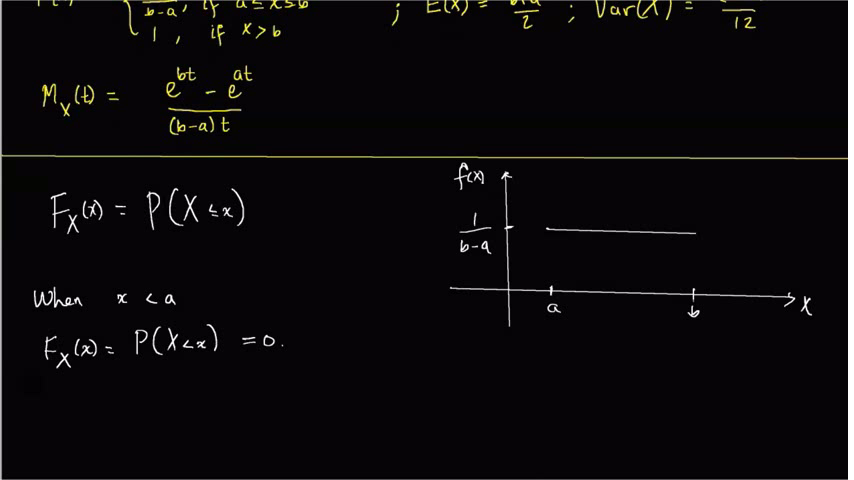 b-a , if a ≤ x ≤ b ; E(X) = b+a / 2 ; Var(X) = 12
1 , if x > b
M_X(t) = e^bt - e^at / (b-a)t
F_X(x) = P(X ≤ x)
When x < a
F_X(x) = P(X < x) = 0.
f(x)
1 / b-a
a b X